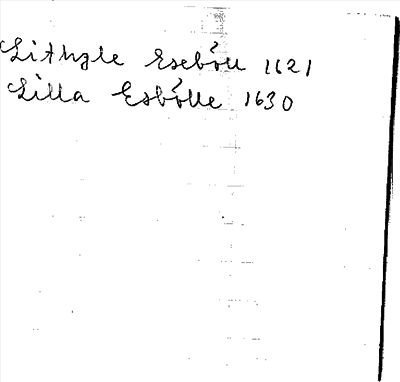 Lithzle Eseböll 1621
Lilla Esbölle 1630